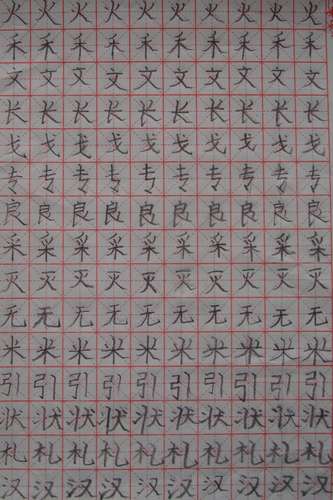 火火火火火火火火火火
禾禾禾禾禾禾禾禾禾禾
文文文文文文文文文文
长长长长长长长长长长
戈戈戈戈戈戈戈戈戈戈
专专专专专专专专专专
良良良良良良良良良良
采采采采采采采采采采
灭灭灭灭灭灭灭灭灭灭
无无无无无无无无无无
米米米米米米米米米米
引引引引引引引引引引
状状状状状状状状状状
札札札札札札札札札札
汉汉汉汉汉汉汉汉汉汉